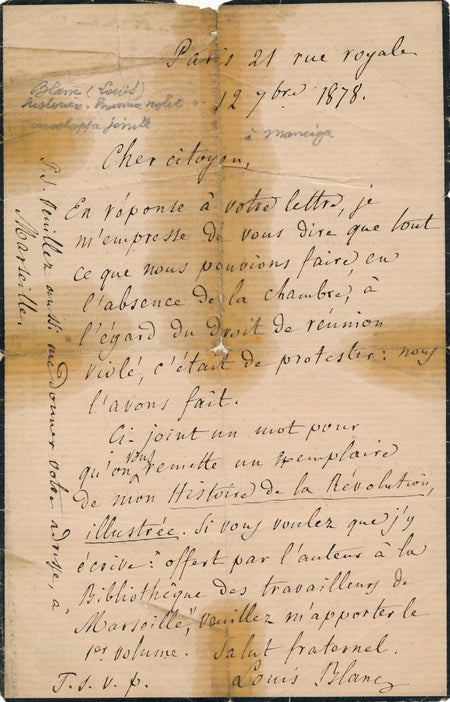 Paris 21 rue royale
12 7bre 1878.
Blanc (Louis)
enveloppe jointe
à
Cher citoyen,
En réponse à votre lettre, je
m'empresse de vous dire que tout
ce que nous pouvions faire, en
l'absence de la chambre, à
l'égard du Droit de réunion
violé, c'était de protester : nous
l'avons fait.
Ci-joint un mot pour
qu'on vous remette un exemplaire
de mon Histoire de la Révolution,
illustrée. Si vous voulez que j'y
écrive : "offert par l'auteur à la
Bibliothèque des travailleurs de
Marseille", veuillez m'apporter le
1er volume. Salut fraternel.
T. s. v. p. Louis Blanc
P. S. Veuillez aussi me donner votre adresse, à
Marseille.